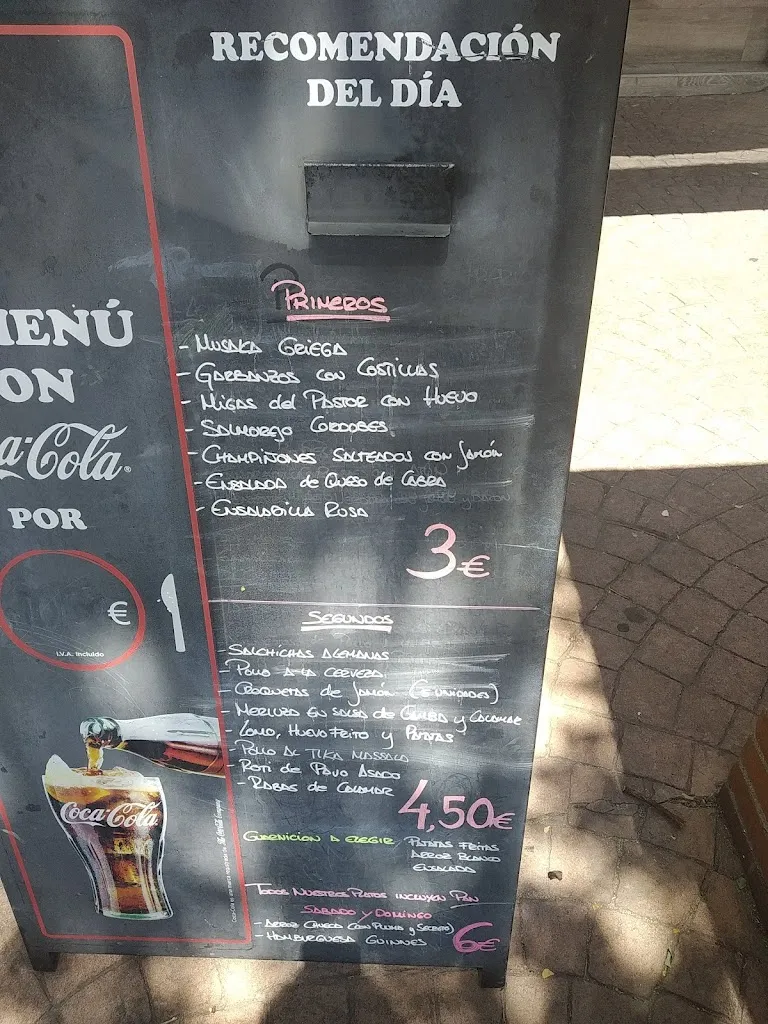 RECOMENDACIÓN
DEL DÍA
MENÚ
ON
a-Cola
POR
€
I.V.A. Incluido
Coca-Cola
PRIMEROS
- MUSAKA GRIEGA
- GARBANZOS CON COSTILLAS
- MIGAS del PASTOR CON HUEVO
- SALMOREJO CORDOBES
- CHAMPIÑONES SALTEADOS CON JAMÓN
- ENSALADA de QUESO de CABRA
- ENSALADILLA RUSA
3€
SEGUNDOS
- SALCHICHAS ALEMANAS
- POLLO A LA CERVEZA
- CROQUETAS de JAMÓN (6 UNIDADES)
- MERLUZA EN SALSA de GAMBA y CALAMAR
- LOMO, HUEVO FRITO y PATATAS
- POLLO AL TIKA MASSALA
- ROTI de PAVO ASADO
- RABAS de CALAMAR
4,50€
GUARNICION A ELEGIR
PATATAS FRITAS
ARROZ BLANCO
ENSALADA
TODOS NUESTROS PLATOS INCLUYEN PAN
SABADO Y DOMINGO
- ARROZ CON PLUMA y SECRETO)
- HAMBURGUESA GUINNES
6€